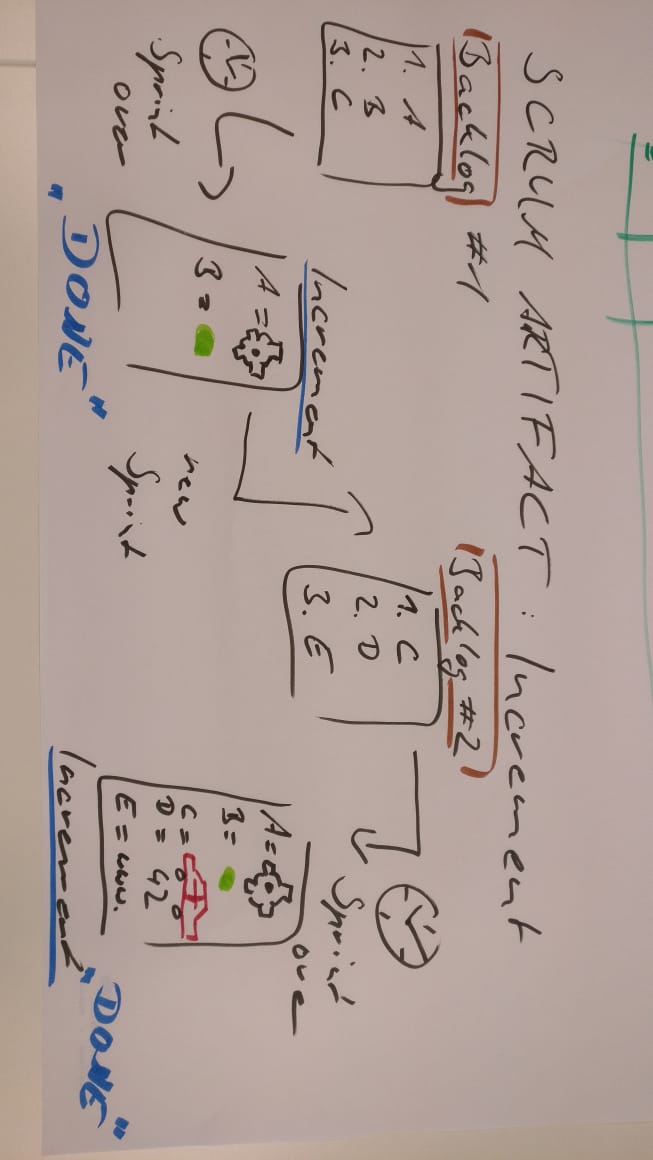 SCRUM ARTIFACT : Increment
Backlog #1
1. A
2. B
3. C
Sprint
over
Increment
A =
B =
„DONE"
new
Sprint
Backlog #2
1. C
2. D
3. E
Sprint
over
A=
B=
C=
D = 42
E = www.
Increment
„DONE"